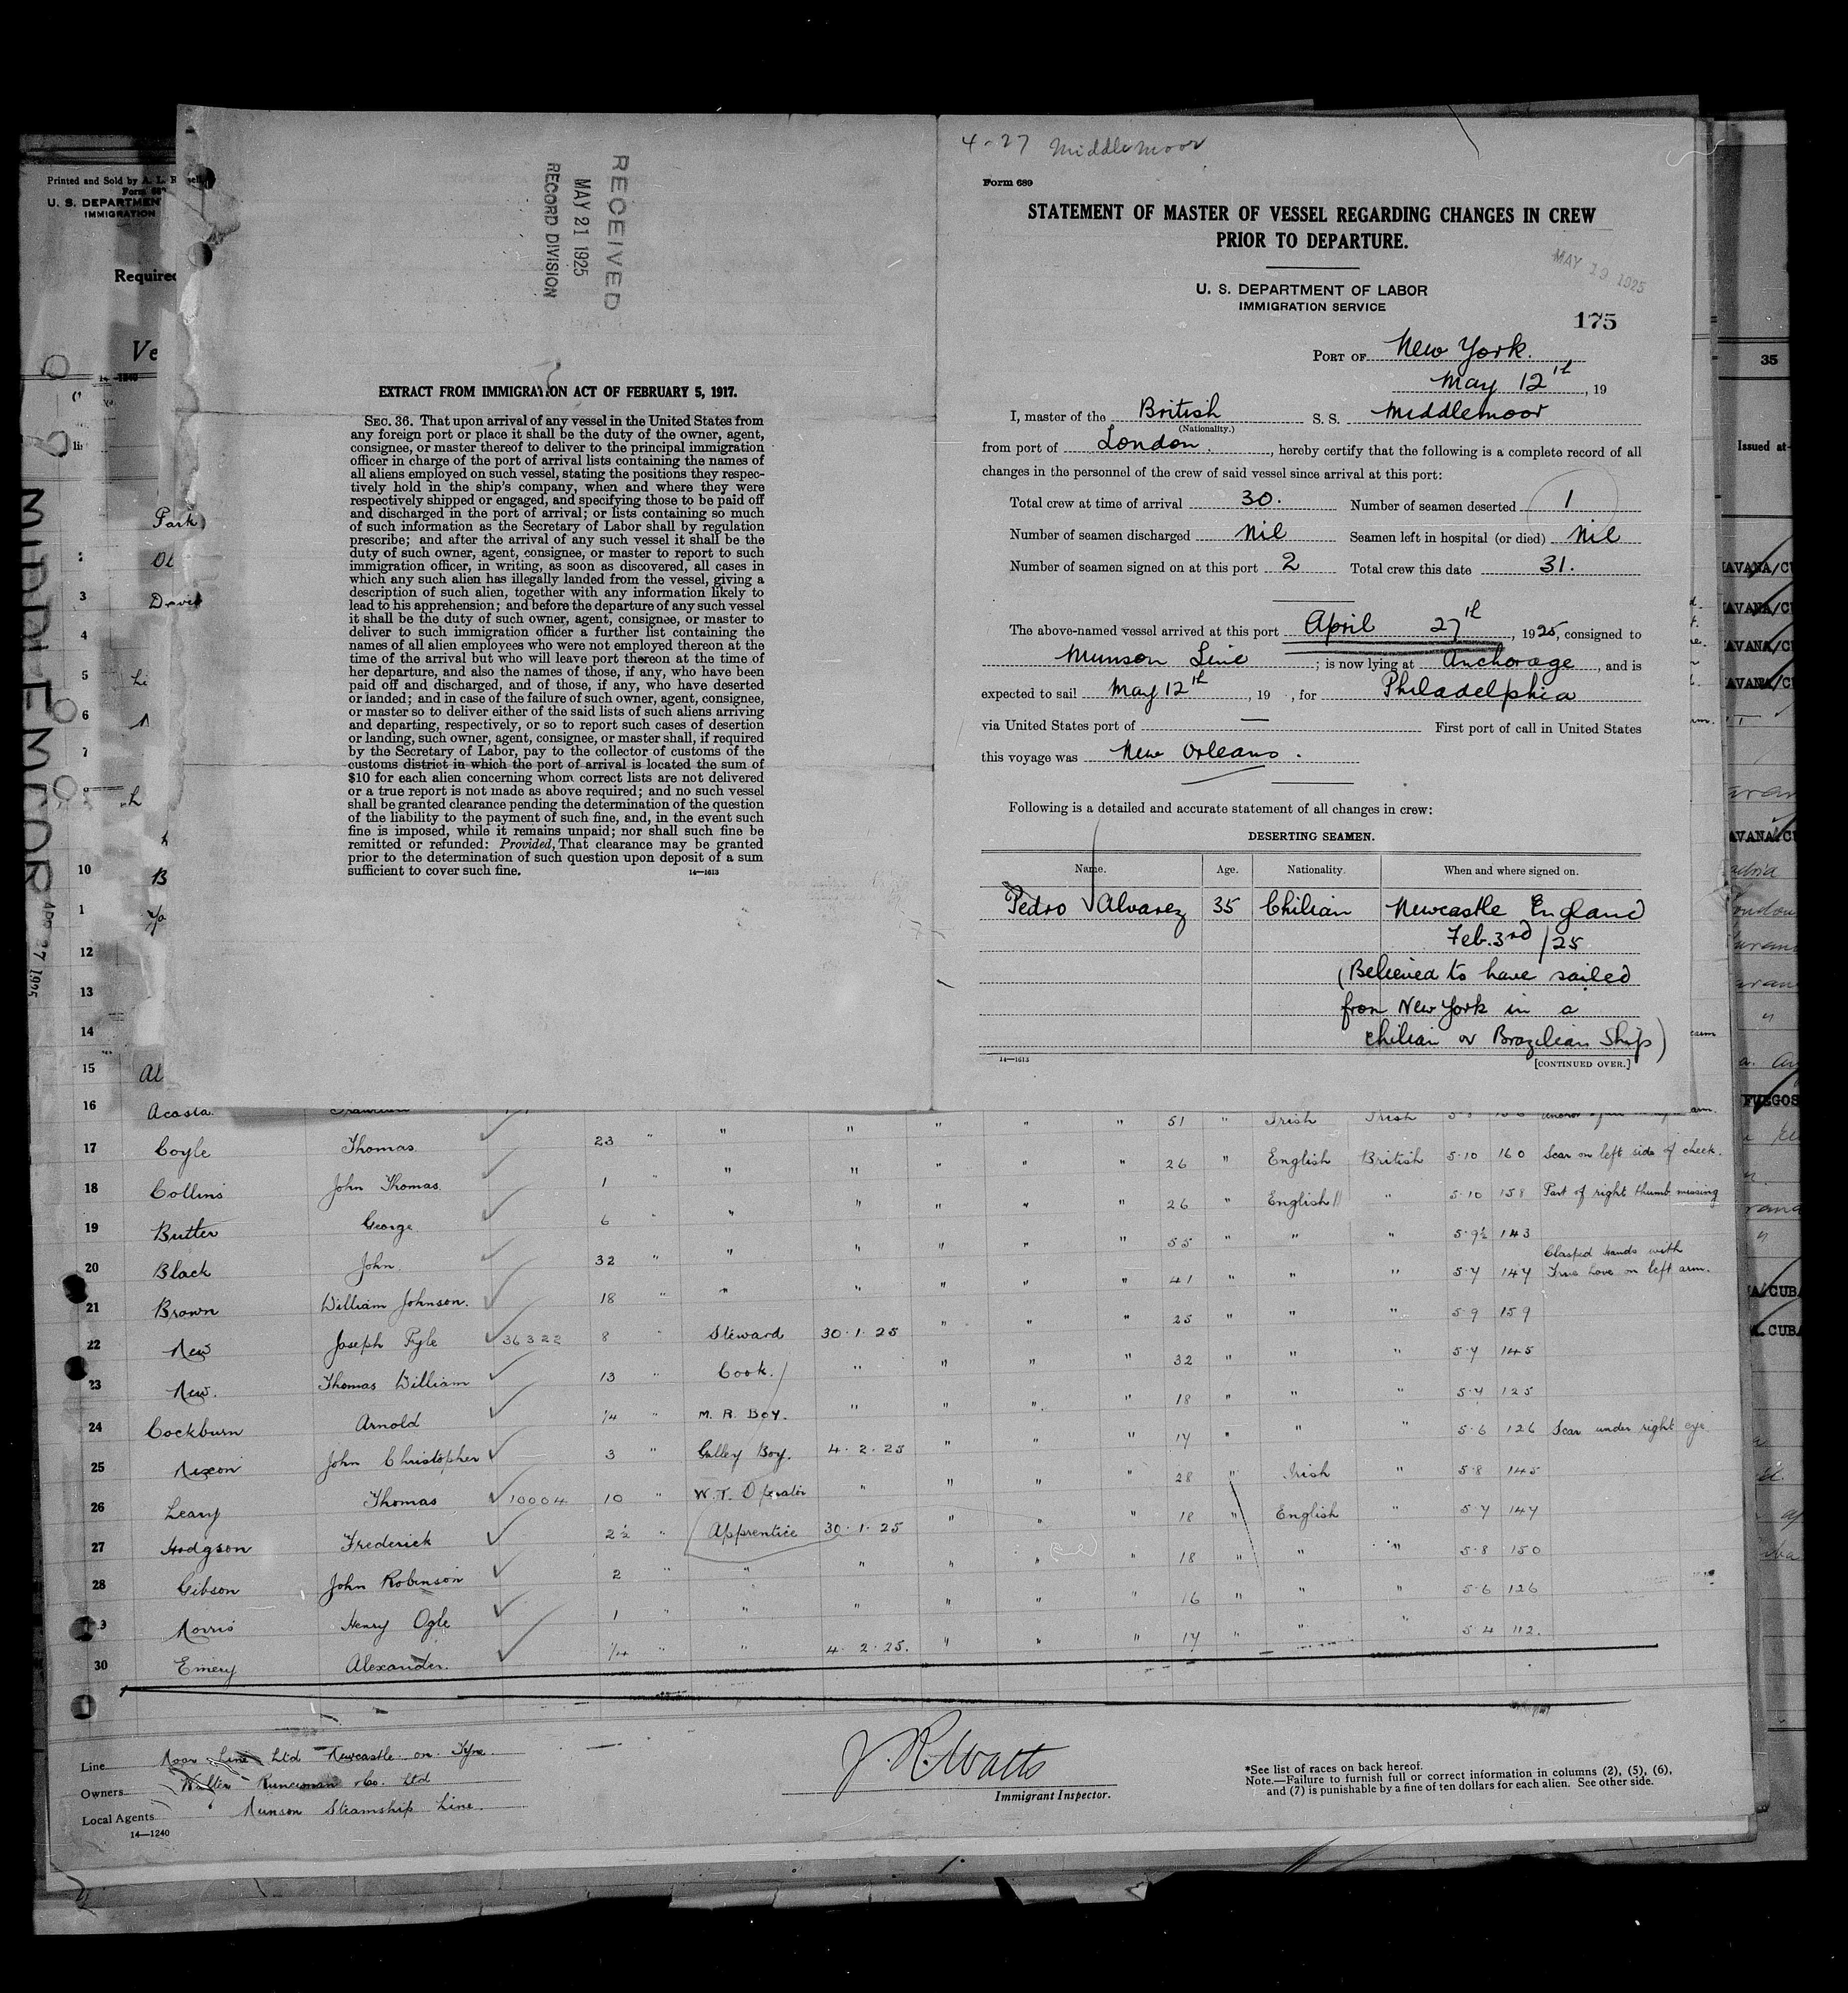 Printed and Sold by A. L. R
Form 689
U. S. DEPARTMEN
IMMIGRATION
Required
Ve
MIDDLEMOOR APR 27 1925
RECEIVED
MAY 21 1925
RECORD DIVISION
EXTRACT FROM IMMIGRATION ACT OF FEBRUARY 5, 1917.
SEC. 36. That upon arrival of any vessel in the United States from
any foreign port or place it shall be the duty of the owner, agent,
consignee, or master thereof to deliver to the principal immigration
officer in charge of the port of arrival lists containing the names of
all aliens employed on such vessel, stating the positions they respec-
tively hold in the ship's company, when and where they were
respectively shipped or engaged, and specifying those to be paid off
and discharged in the port of arrival; or lists containing so much
of such information as the Secretary of Labor shall by regulation
prescribe; and after the arrival of any such vessel it shall be the
duty of such owner, agent, consignee, or master to report to such
immigration officer, in writing, as soon as discovered, all cases in
which any such alien has illegally landed from the vessel, giving a
description of such alien, together with any information likely to
lead to his apprehension; and before the departure of any such vessel
it shall be the duty of such owner, agent, consignee, or master to
deliver to such immigration officer a further list containing the
names of all alien employees who were not employed thereon at the
time of the arrival but who will leave port thereon at the time of
her departure, and also the names of those, if any, who have been
paid off and discharged, and of those, if any, who have deserted
or landed; and in case of the failure of such owner, agent, consignee,
or master so to deliver either of the said lists of such aliens arriving
and departing, respectively, or so to report such cases of desertion
or landing, such owner, agent, consignee, or master shall, if required
by the Secretary of Labor, pay to the collector of customs of the
customs district in which the port of arrival is located the sum of
$10 for each alien concerning whom correct lists are not delivered
or a true report is not made as above required; and no such vessel
shall be granted clearance pending the determination of the question
of the liability to the payment of such fine, and, in the event such
fine is imposed, while it remains unpaid; nor shall such fine be
remitted or refunded: Provided, That clearance may be granted
prior to the determination of such question upon deposit of a sum
sufficient to cover such fine. 14—1613
4-27 Middlemoor
Form 689
STATEMENT OF MASTER OF VESSEL REGARDING CHANGES IN CREW
PRIOR TO DEPARTURE.
MAY 19 1925
U. S. DEPARTMENT OF LABOR
IMMIGRATION SERVICE
175
PORT OF New York.
May 12th, 19
I, master of the British S. S. Middlemoor
(Nationality.)
from port of London., hereby certify that the following is a complete record of all
changes in the personnel of the crew of said vessel since arrival at this port:
Total crew at time of arrival 30. Number of seamen deserted 1
Number of seamen discharged Nil Seamen left in hospital (or died) Nil
Number of seamen signed on at this port 2 Total crew this date 31.
The above-named vessel arrived at this port April 27th, 1925, consigned to
Munson Line; is now lying at Anchorage, and is
expected to sail May 12th, 19 , for Philadelphia
via United States port of — First port of call in United States
this voyage was New Orleans.
Following is a detailed and accurate statement of all changes in crew:
DESERTING SEAMEN.
Name. Age. Nationality. When and where signed on.
Pedro Alvarez 35 Chilian Newcastle England
Feb. 3rd/25
(Believed to have sailed
from New York in a
Chilian or Brazilian Ship)
14—1613
[CONTINUED OVER.]
35
Issued at-
16 Acosta 51 " Irish Irish
17 Coyle Thomas 23 " " " " " " 26 " English British 5·10 160 Scar on left side of cheek.
18 Collins John Thomas 1 " " " " " " 26 " English " 5·10 158 Part of right thumb missing
19 Butler George 6 " " " " " " 55 " " " 5·9½ 143
20 Black John 32 " " " " " " 41 " " " 5·7 147 Clasped hands with
True love on left arm.
21 Brown William Johnson. 18 " " " " " " 25 " " " 5·9 159
22 New Joseph Pyle 36322 8 " Steward 30·1·25 " " " 32 " " " 5·7 145
23 New. Thomas William 13 " Cook. " " " " 18 " " " 5·4 125
24 Cockburn Arnold ¼ " M. R. Boy. " " " " 17 " " " 5·6 126 Scar under right eye
25 Nixon John Christopher 3 " Galley Boy. 4·2·25 " " " 28 " Irish " 5·8 145
26 Leary Thomas 10004 10 " W.T. Operator " " " " 18 " English " 5·7 147
27 Hodgson Frederick 2½ " Apprentice 30·1·25 " " " 18 " " " 5·8 150
28 Gibson John Robinson 2 " " " " " " 16 " " " 5·6 126
29 Morris Henry Ogle 1 " " " " " " 17 " " " 5·4 112.
30 Emery Alexander. ¼ " " 4·2·25. " " "
Line Moor Line Ltd Newcastle on Tyne.
Owners Walter Runciman & Co. Ltd
Local Agents Munson Steamship Line.
14—1240
J. R. Watts
Immigrant Inspector.
*See list of races on back hereof.
Note.—Failure to furnish full or correct information in columns (2), (5), (6),
and (7) is punishable by a fine of ten dollars for each alien. See other side.